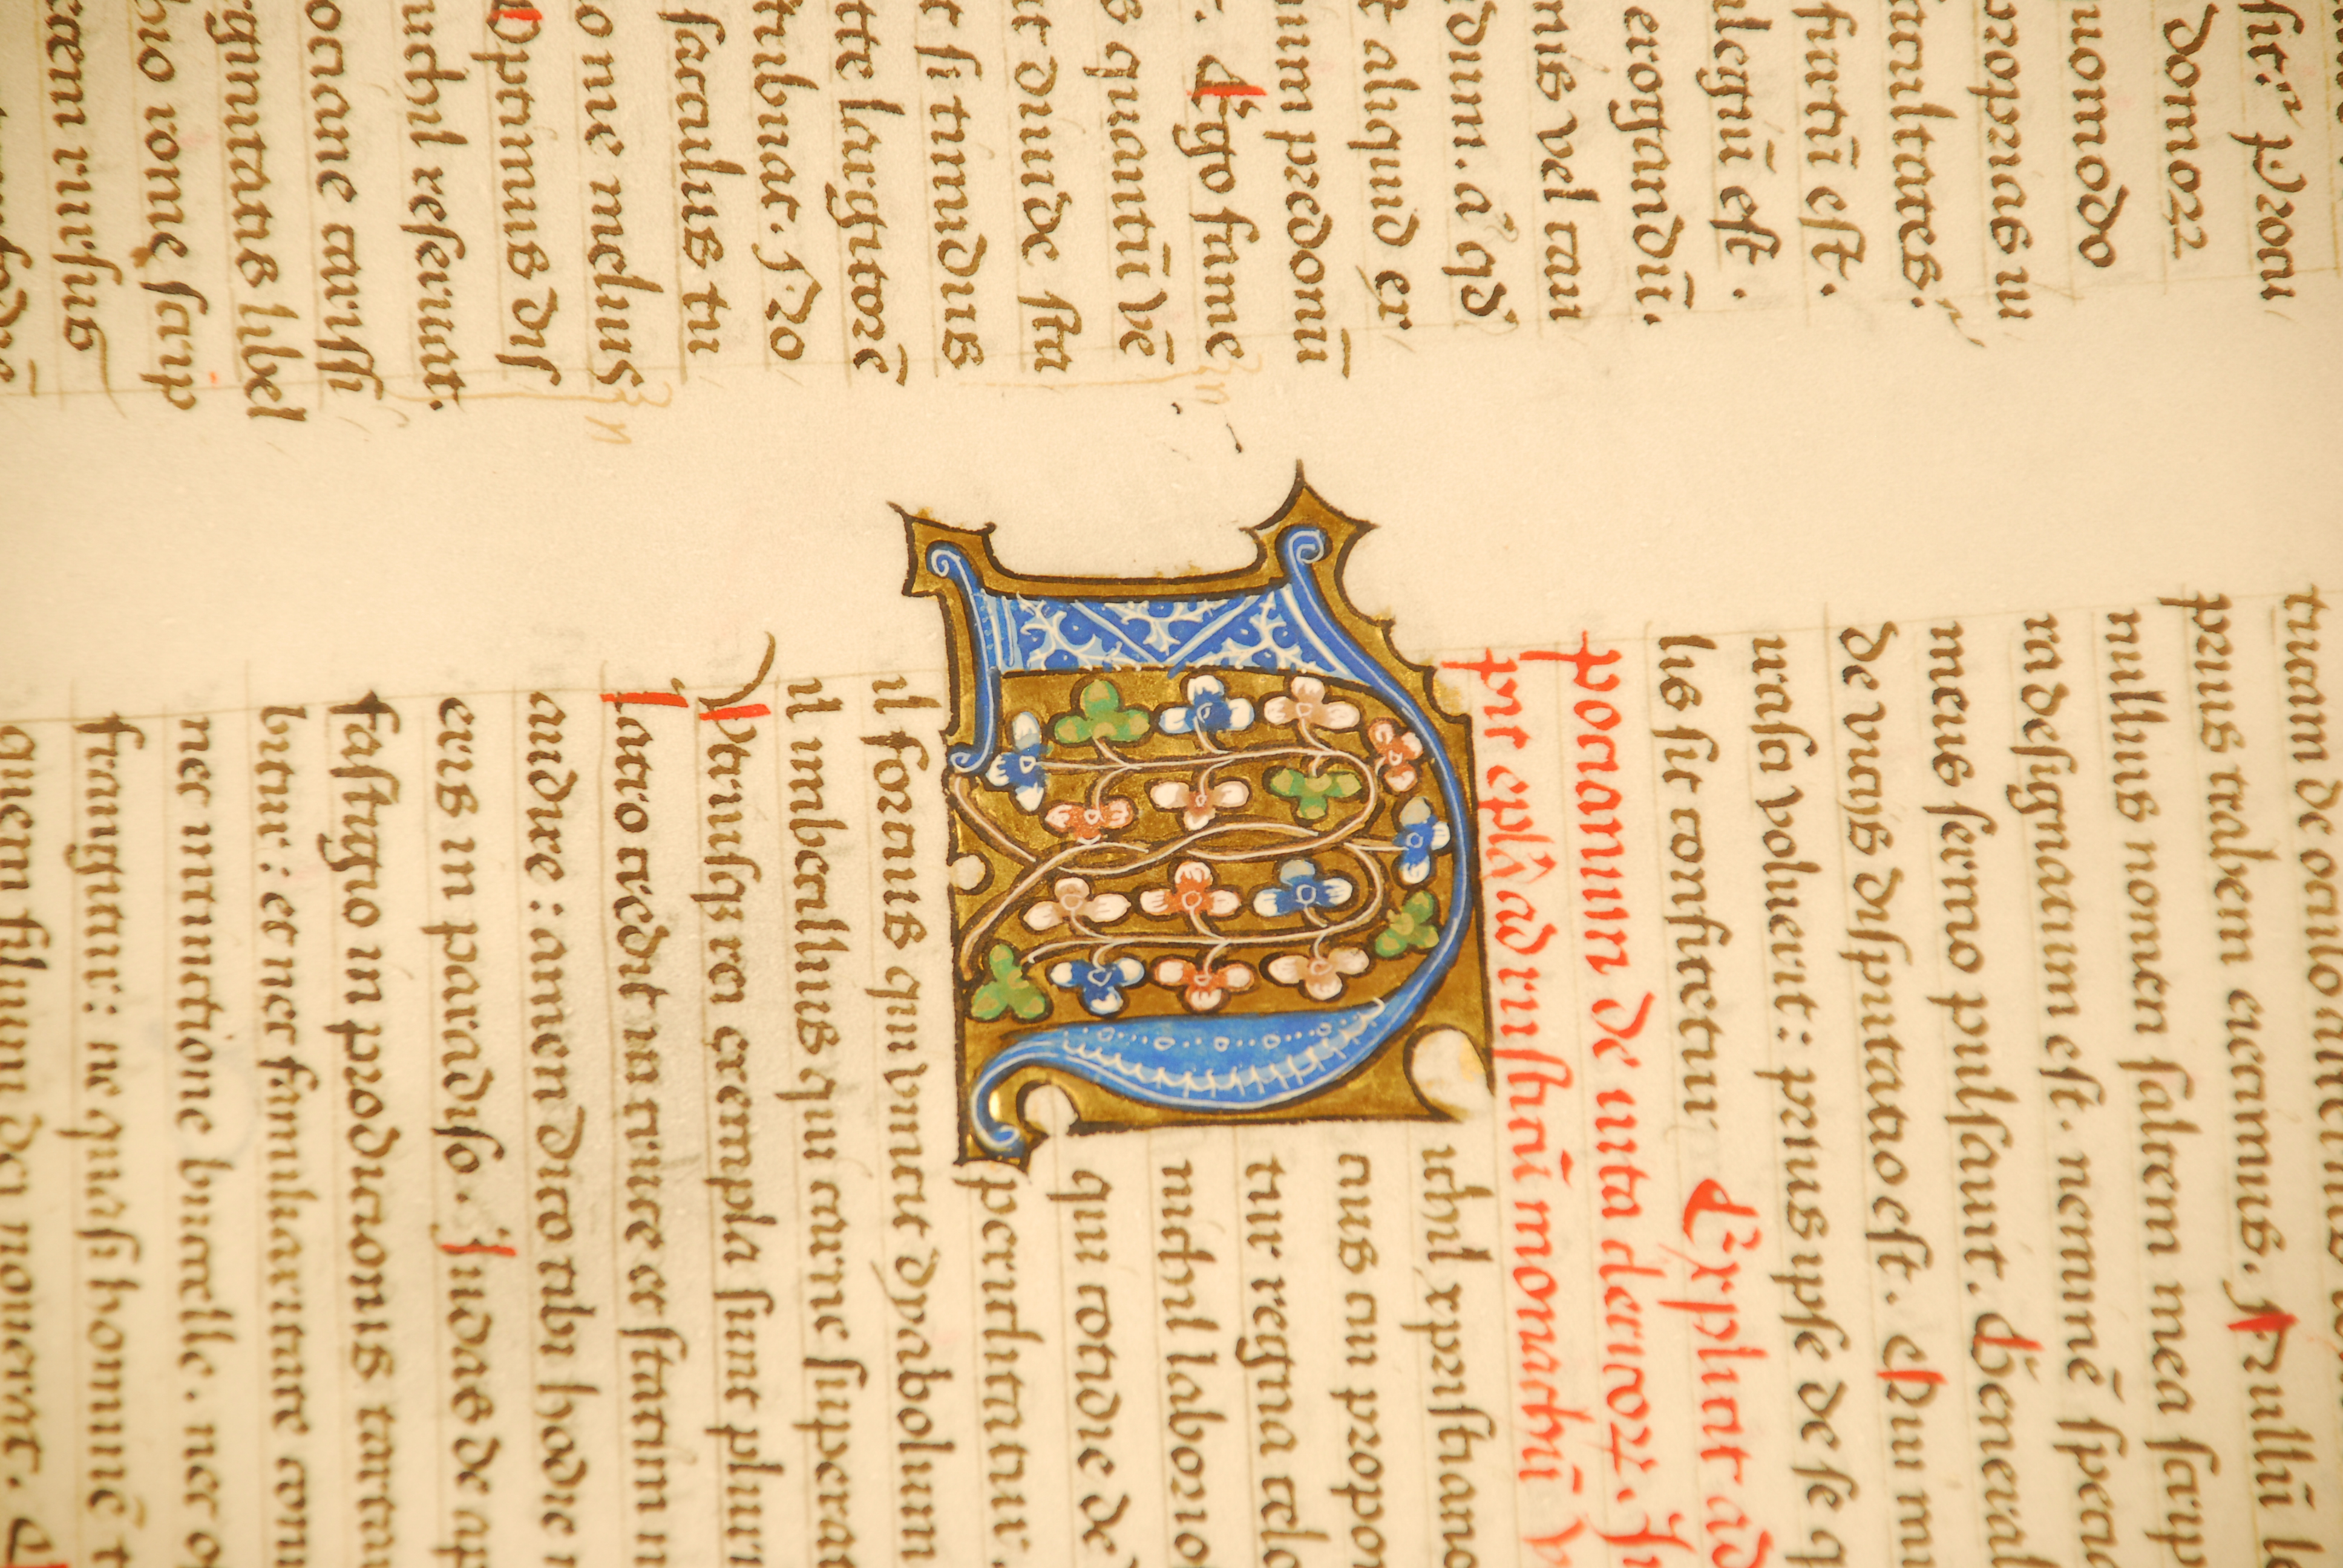 sit: Proui
domorz
quomodo
proprias in
facultates.
fiatū est.
alegū est.
erogandū.
nis vel cau
dum. a qd
t aliquid er
ium predonū
Ergo sume
s quantū vē
ut diuide sta
r si timidus
tte largitorē
tribuat. Fro
sacculus tu
o me melius
Optimus dis
nichil reseruat.
ociane carissi
rginitatis libel
hio rome scrip
cem rursus
tuam de oculo alterius
prius trabem eiciamus. Nullū l
nullius nomen saltem mea scrip
ra designatum est. neminē specia
meus sermo pulsauit. Generali
de viciis disputatio est. Qui m
irasci voluerit: prius ipse de se q
lis sit confitetur Explicit ad
pocianum de uita clericorz. In
pit eplā ad rusticū monachū V
ichil xpistiano
cius cui propon
tur regna celo
nichil laborio
qui cotidie de
periclitatur.
il forcius qui vincit dyabolum
il imbecillius qui carne supera
Vtriusq; rei exempla sunt plurī
Latro credit in cruce et statim m
audire: amen dico tibi hodie m
eris in paradiso. Iudas de ap
fastigio in prodicionis tarta
bitur: et nec familiaritate con
nec intinctione bucelle. nec o
frangitur: ne quasi hominē t
quem filium dei nouerat.